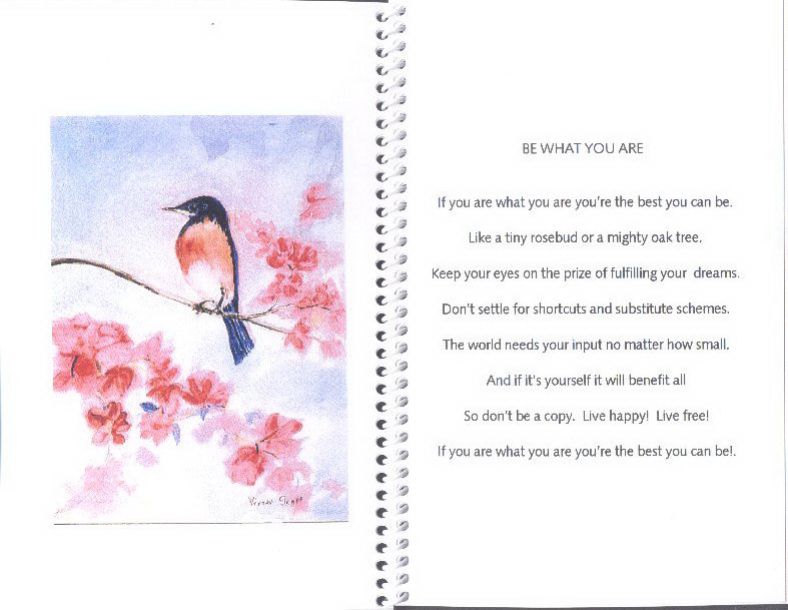 BE WHAT YOU ARE
If you are what you are you're the best you can be.
Like a tiny rosebud or a mighty oak tree.
Keep your eyes on the prize of fulfilling your dreams.
Don't settle for shortcuts and substitute schemes.
The world needs your input no matter how small.
And if it's yourself it will benefit all
So don't be a copy. Live happy! Live free!
If you are what you are you're the best you can be!.